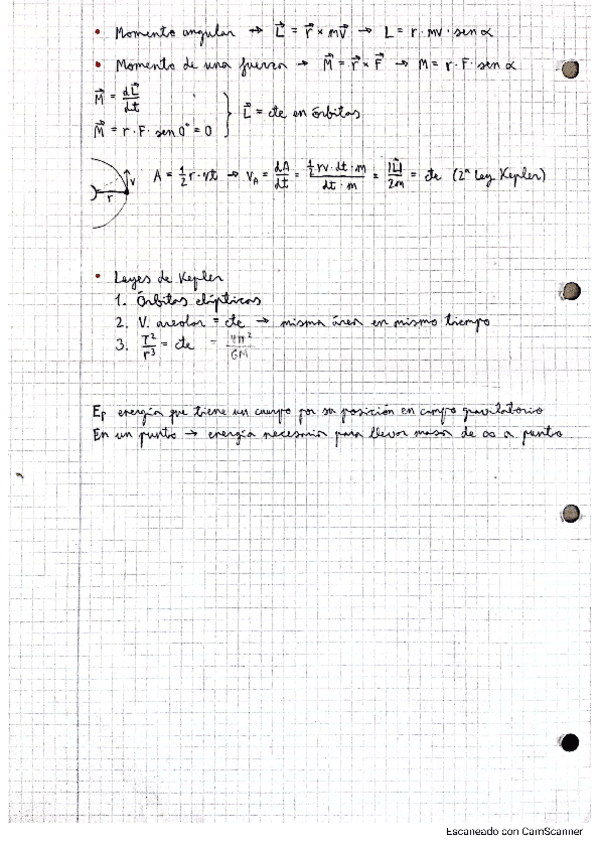 • Momento angular → L⃗ = r⃗ × mv⃗ → L = r · mv · sen α
• Momento de una fuerza → M⃗ = r⃗ × F⃗ → M = r · F · sen α
M⃗ = dL⃗/dt
M⃗ = r · F · sen 0° = 0 } L⃗ = cte en órbitas
v r A = 1/2 r · vt → v_A = dA/dt = (1/2 rv · dt · m)/(dt · m) = |L⃗|/2m = cte (2ª Ley Kepler)
• Leyes de Kepler
1. Órbitas elípticas
2. V. areolar = cte → misma área en mismo tiempo
3. T²/r³ = cte = 4π²/GM
Ep energía que tiene un cuerpo por su posición en campo gravitatorio
En un punto → energía necesaria para llevar masa de ∞ a punto
Escaneado con CamScanner